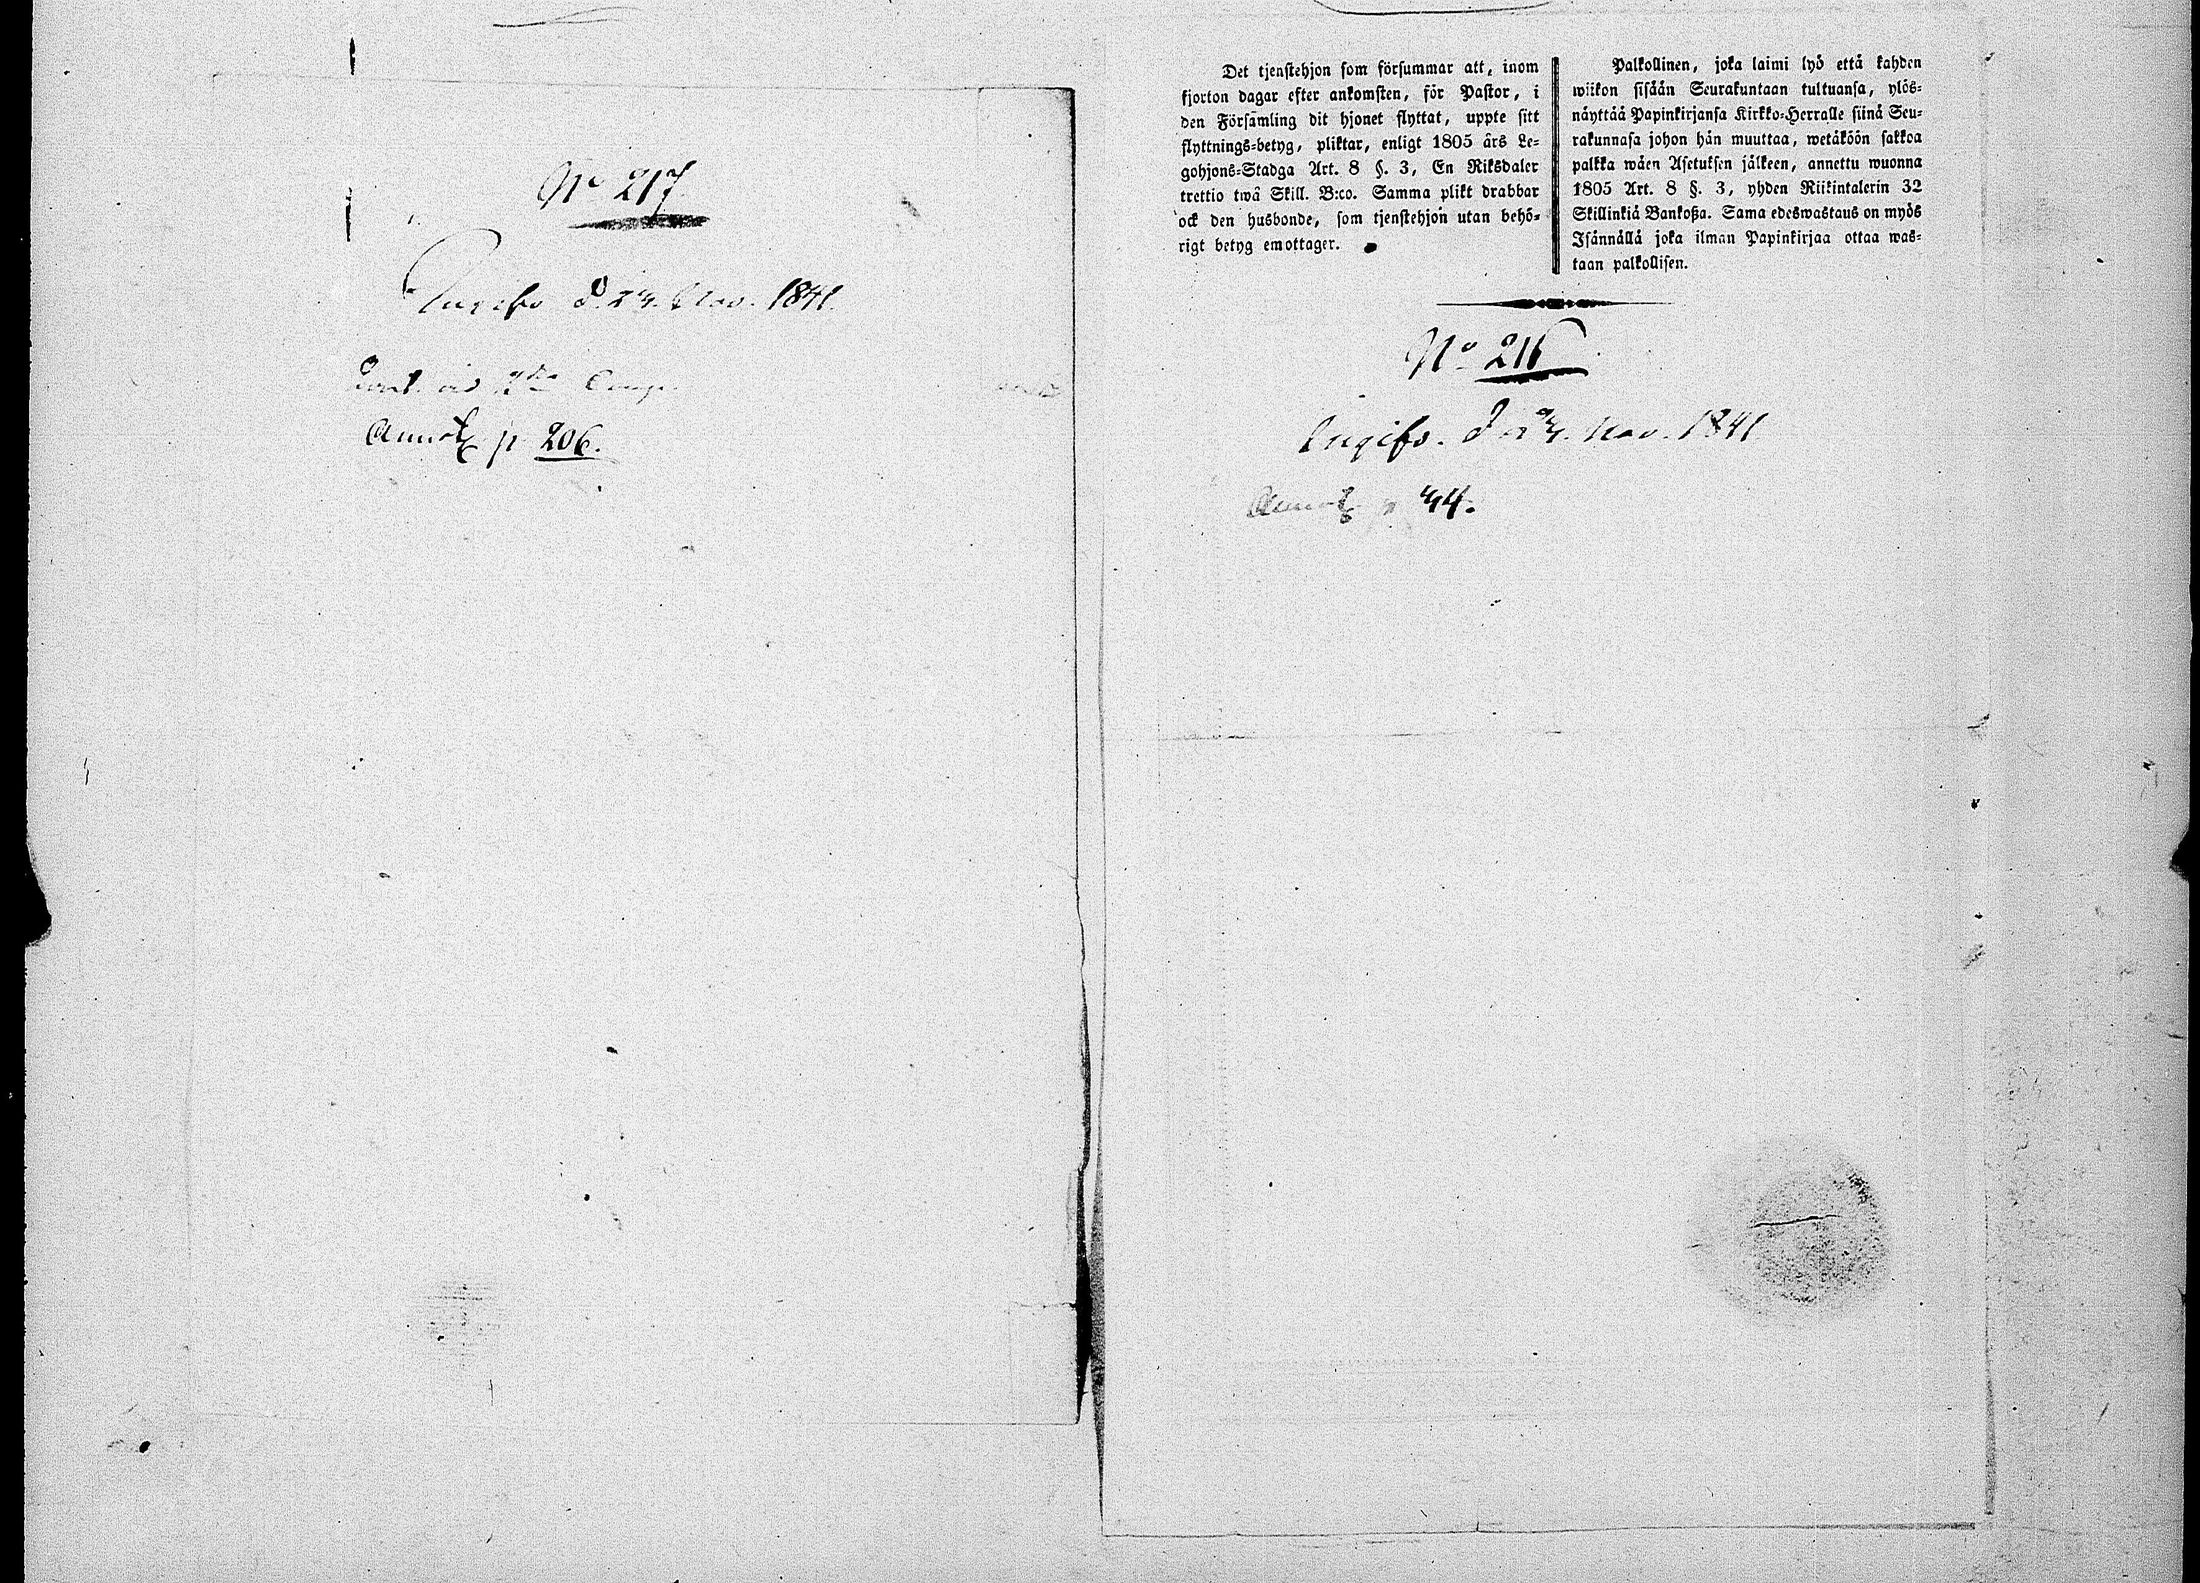 No 217
Ingifv. d. 24. Nov. 1841.
Annot. p 206.
Det tjenstehjon som försummar att, inom
fjorton dagar efter ankomsten, för Pastor, i
den Församling dit hjonet flyttat, uppte sitt
flyttnings-betyg, pliktar, enligt 1805 års Le-
gohjons-Stadga Art. 8 §. 3, En Riksdaler
trettio twå Skill. B:co. Samma plikt drabbar
ock den husbonde, som tjenstehjon utan behö-
rigt betyg emottager.
Palkollinen, joka laimi lyö että kahden
wiikon sisään Seurakuntaan tultuansa, ylös-
näyttää Papinkirjansa Kirkko-Herralle siinä Seu-
rakunnasa johon hän muuttaa, wetäköön sakkoa
palkka wäen Asetuksen jälkeen, annettu wuonna
1805 Art. 8 §. 3, yhden Riikintalerin 32
Skillinkiä Bankoßa. Sama edeswastaus on myös
Isännällä joka ilman Papinkirjaa ottaa was-
taan palkollisen.
No 216
Ingifv. d. 24. Nov. 1841
Annot. p 44.